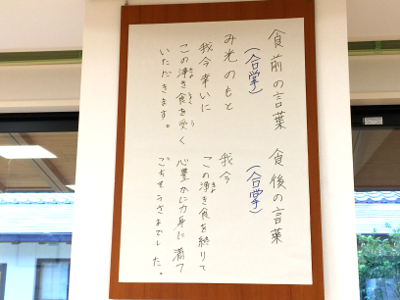 食前の言葉
(合掌)
み光のもと
我今幸いに
この浄き食を受く
いただきます。
食後の言葉
(合掌)
我今
この浄き食を終りて
心豊かに力身に満つ
ごちそうさまでした。